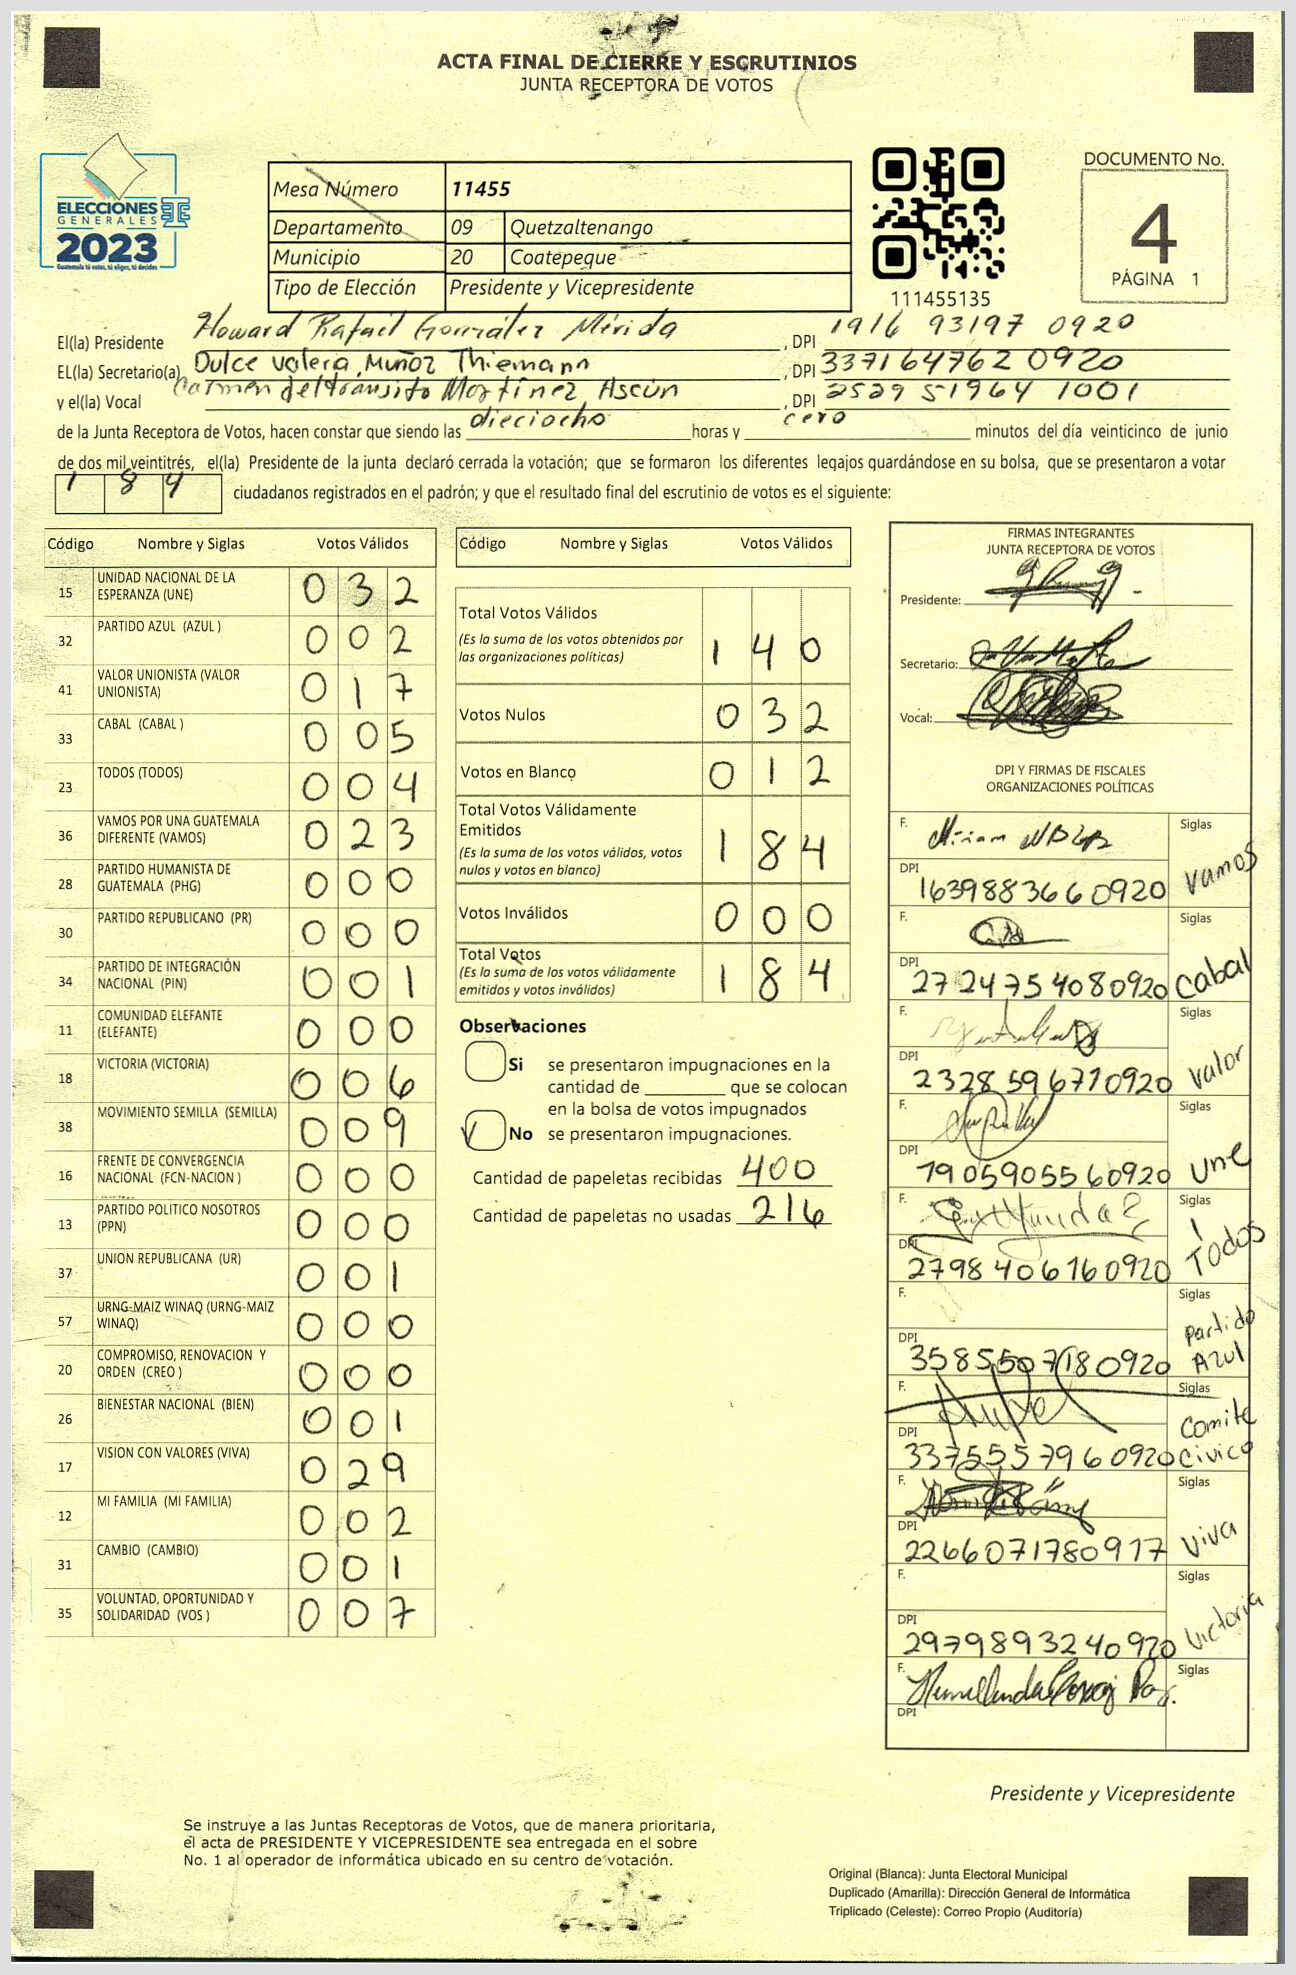 ACTA FINAL DE CIERRE Y ESCRUTINIOS
JUNTA RECEPTORA DE VOTOS
ELECCIONES
GENERALES
2023
Guatemala tú votas, tú eliges, tú decides
Mesa Número 11455
Departamento 09 Quetzaltenango
Municipio 20 Coatepeque
Tipo de Elección Presidente y Vicepresidente
111455135
DOCUMENTO No.
4
PÁGINA 1
El(la) Presidente Howard Rafael González Mérida, DPI 1916 93197 0920
EL(la) Secretario(a) Dulce Valera Muñoz Thiemann, DPI 337164762 0920
y el(la) Vocal Carmen del tránsito Martínez Ascún, DPI 2529 51964 1001
de la Junta Receptora de Votos, hacen constar que siendo las dieciocho horas y cero minutos del día veinticinco de junio
de dos mil veintitrés, el(la) Presidente de la junta declaró cerrada la votación; que se formaron los diferentes legajos guardándose en su bolsa, que se presentaron a votar
184 ciudadanos registrados en el padrón; y que el resultado final del escrutinio de votos es el siguiente:
Código Nombre y Siglas Votos Válidos
15 UNIDAD NACIONAL DE LA ESPERANZA (UNE) 032
32 PARTIDO AZUL (AZUL ) 002
41 VALOR UNIONISTA (VALOR UNIONISTA) 017
33 CABAL (CABAL ) 005
23 TODOS (TODOS) 004
36 VAMOS POR UNA GUATEMALA DIFERENTE (VAMOS) 023
28 PARTIDO HUMANISTA DE GUATEMALA (PHG) 000
30 PARTIDO REPUBLICANO (PR) 000
34 PARTIDO DE INTEGRACIÓN NACIONAL (PIN) 001
11 COMUNIDAD ELEFANTE (ELEFANTE) 000
18 VICTORIA (VICTORIA) 006
38 MOVIMIENTO SEMILLA (SEMILLA) 009
16 FRENTE DE CONVERGENCIA NACIONAL (FCN-NACION ) 000
13 PARTIDO POLITICO NOSOTROS (PPN) 000
37 UNION REPUBLICANA (UR) 001
57 URNG-MAIZ WINAQ (URNG-MAIZ WINAQ) 000
20 COMPROMISO, RENOVACION Y ORDEN (CREO ) 000
26 BIENESTAR NACIONAL (BIEN) 001
17 VISION CON VALORES (VIVA) 029
12 MI FAMILIA (MI FAMILIA) 002
31 CAMBIO (CAMBIO) 001
35 VOLUNTAD, OPORTUNIDAD Y SOLIDARIDAD (VOS ) 007
Código Nombre y Siglas Votos Válidos
Total Votos Válidos
(Es la suma de los votos obtenidos por
las organizaciones políticas) 140
Votos Nulos 032
Votos en Blanco 012
Total Votos Válidamente
Emitidos
(Es la suma de los votos válidos, votos
nulos y votos en blanco) 184
Votos Inválidos 000
Total Votos
(Es la suma de los votos válidamente
emitidos y votos inválidos) 184
Observaciones
Si se presentaron impugnaciones en la
cantidad de ________ que se colocan
en la bolsa de votos impugnados
No se presentaron impugnaciones.
Cantidad de papeletas recibidas 400
Cantidad de papeletas no usadas 216
FIRMAS INTEGRANTES
JUNTA RECEPTORA DE VOTOS
Presidente:
Secretario:
Vocal:
DPI Y FIRMAS DE FISCALES
ORGANIZACIONES POLÍTICAS
F. Miriam Siglas
DPI 1639883660920 Vamos
F. Siglas
DPI 2724754080920 Cabal
F. Siglas
DPI 2328596770920 Valor
F. Siglas
DPI 7905905560920 Une
F. Siglas
DPI 2798406160920 Todos
F. Siglas
DPI 3585507180920 Partido Azul
F. Siglas
DPI 3375557960920 Comite Civico
F. Siglas
DPI 2266071780917 Viva
F. Siglas
DPI 2979893240920 Victoria
F. Siglas
DPI
Presidente y Vicepresidente
Se instruye a las Juntas Receptoras de Votos, que de manera prioritaria,
el acta de PRESIDENTE Y VICEPRESIDENTE sea entregada en el sobre
No. 1 al operador de informática ubicado en su centro de votación.
Original (Blanca): Junta Electoral Municipal
Duplicado (Amarilla): Dirección General de Informática
Triplicado (Celeste): Correo Propio (Auditoría)